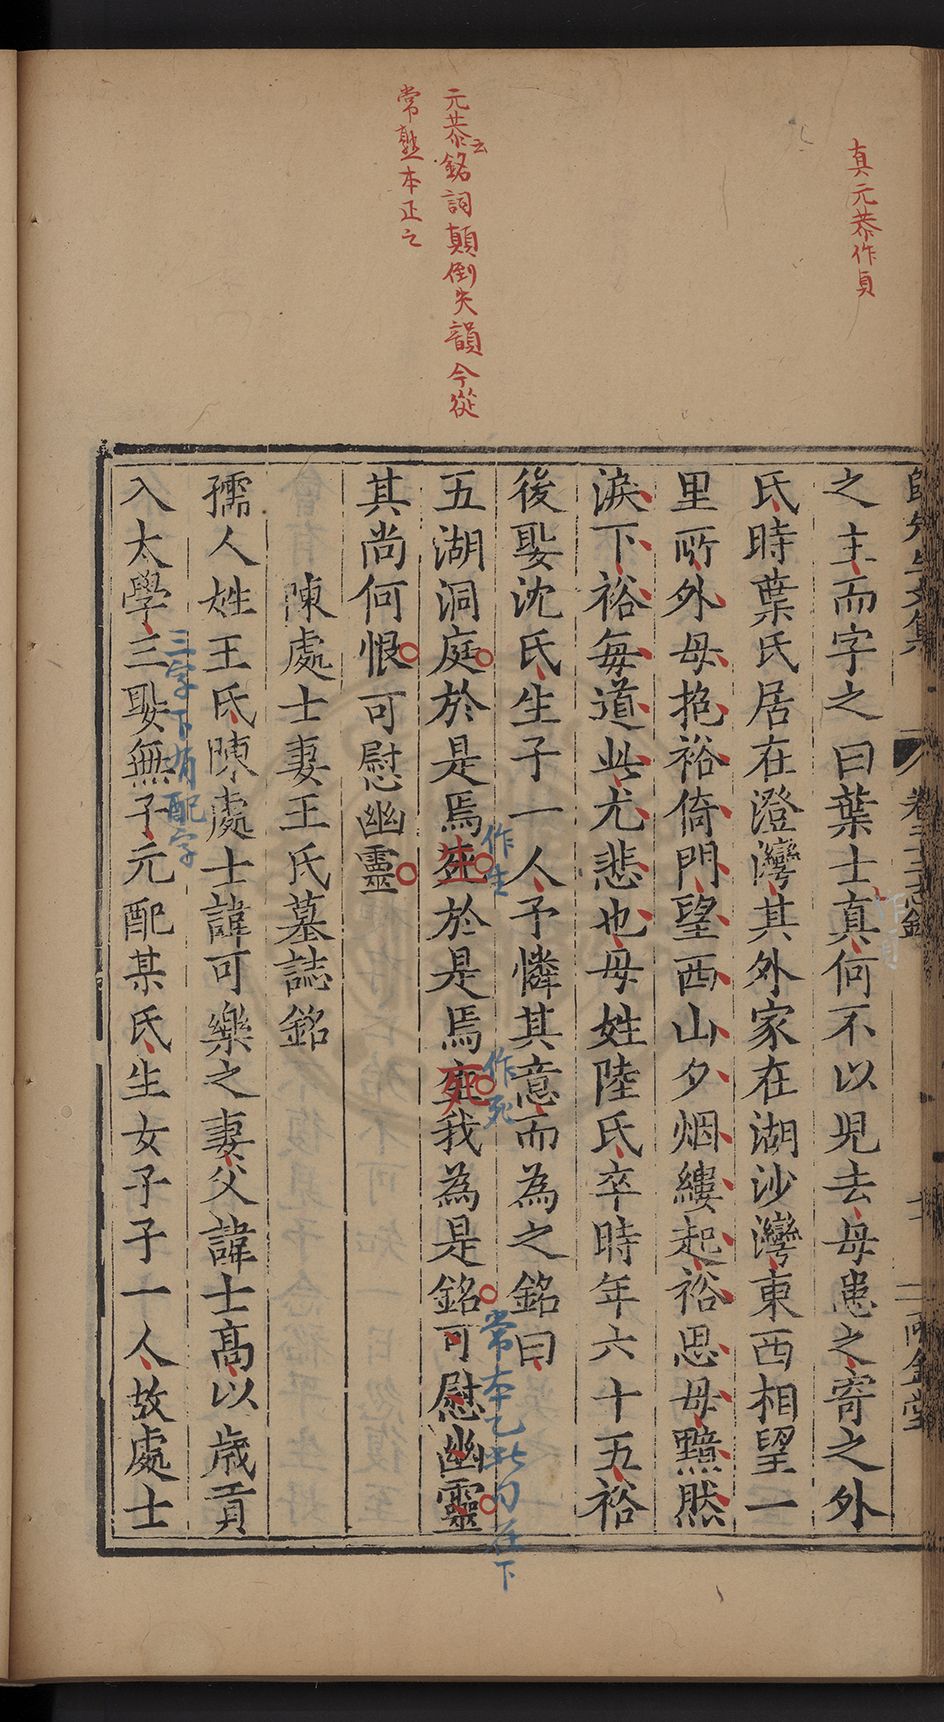 真元恭作貞
元恭云銘詞顛倒失韻今從
常熟本正之
之主而字之曰葉士真何不以兒去母患之寄之外
氏時葉氏居在澄灣其外家在湖沙灣東西相望一
里所外母抱裕倚門望西山夕烟縷起裕思母黯然
淚下裕每道此尤悲也母姓陸氏卒時年六十五裕
後娶沈氏生子一人予憐其意而為之銘曰
五湖洞庭於是焉生於是焉死我為是銘可慰幽靈
作生
作死
常本乙此句在下
其尚何恨可慰幽靈
陳處士妻王氏墓誌銘
孺人姓王氏陳處士諱可樂之妻父諱士高以歲貢
三字下有配字
入太學三娶無子元配某氏生女子子一人故處士